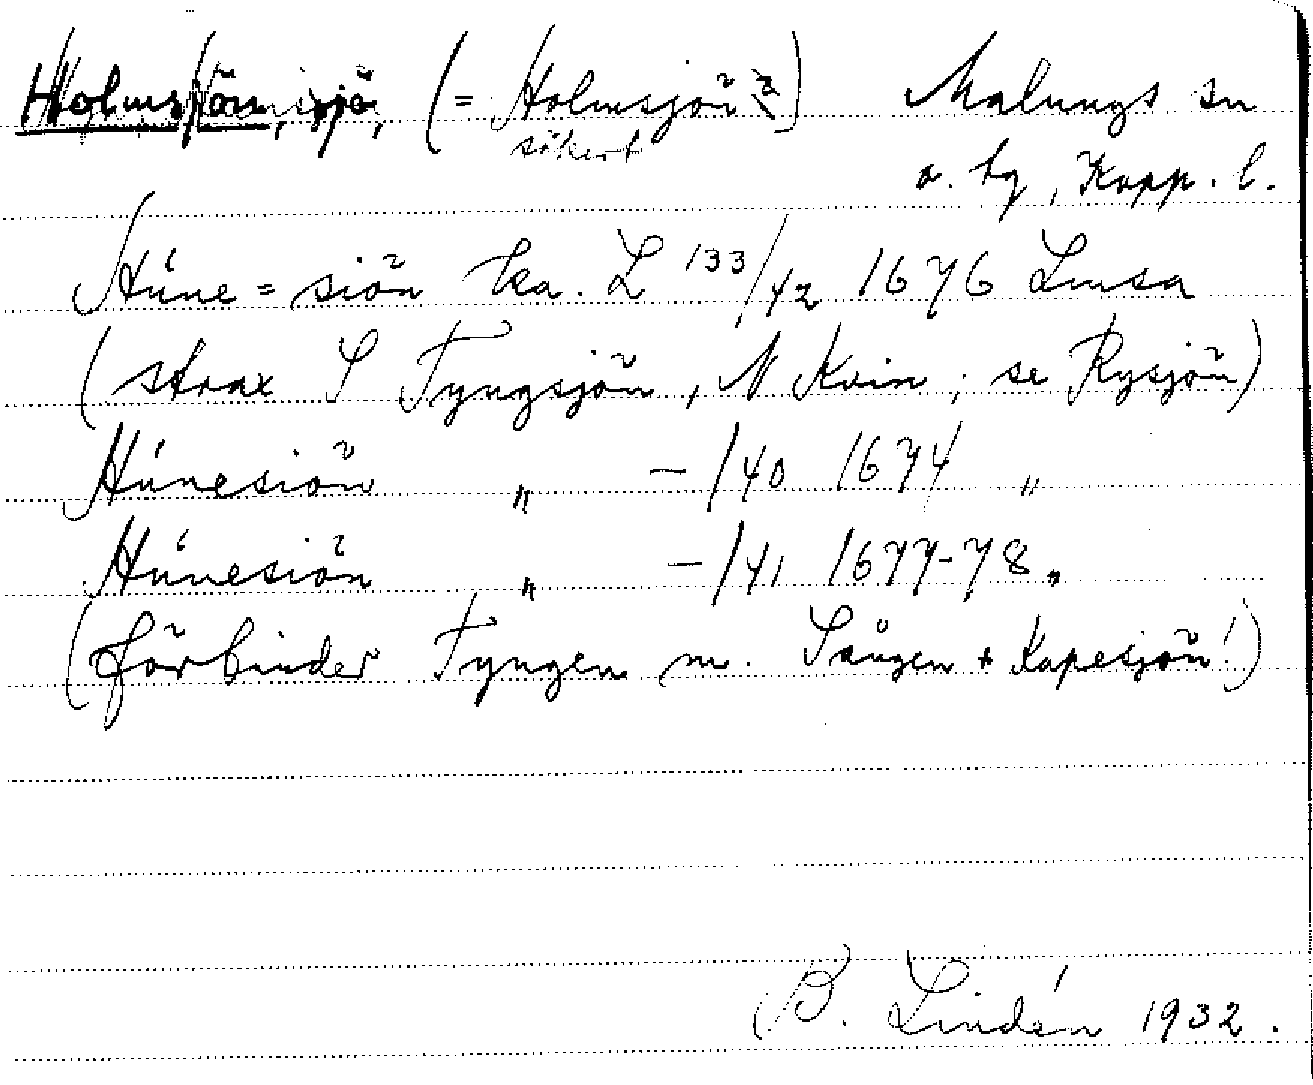 Holmsjön, sjö, (= Holmsjön?) Malungs sn
säkert
o. tg, Kopp. l.
Húne=siön ka. L 133/42 1676 Limsa
(strax S Tyngsjön, N Kvien; se Rysjön)
Húnesiön " — /40 1674 "
Húnesiön " — /41 1677-78 "
(förbinder Tyngen m. Sången + Kapesjön!)
B. Lindén 1932.